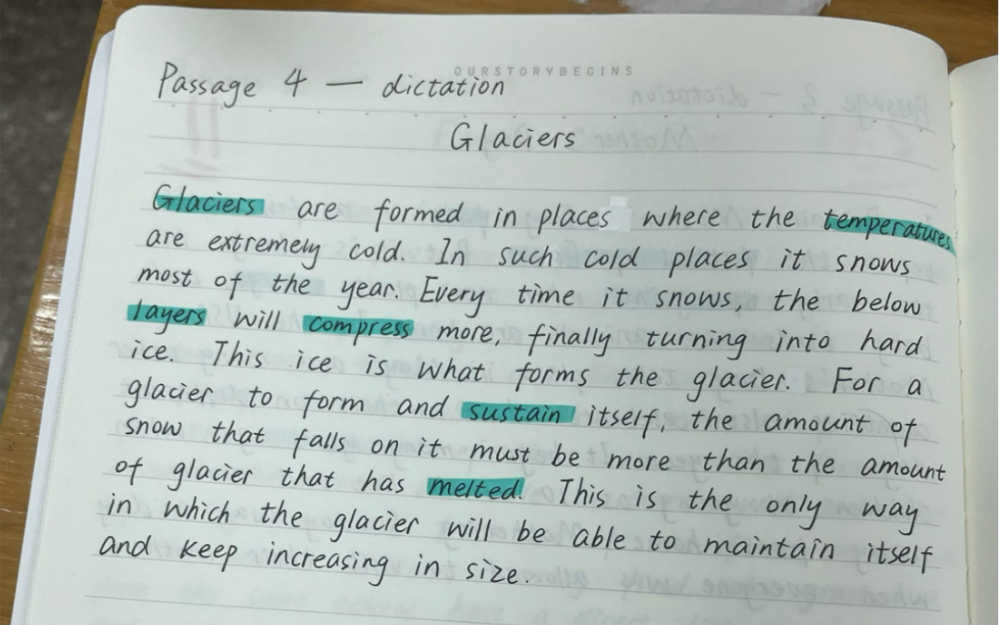 OURSTORYBEGINS
Passage 4 — dictation
Glaciers
Glaciers are formed in places where the temperatures
are extremely cold. In such cold places it snows
most of the year. Every time it snows, the below
layers will compress more, finally turning into hard
ice. This ice is what forms the glacier. For a
glacier to form and sustain itself, the amount of
snow that falls on it must be more than the amount
of glacier that has melted. This is the only way
in which the glacier will be able to maintain itself
and keep increasing in size.